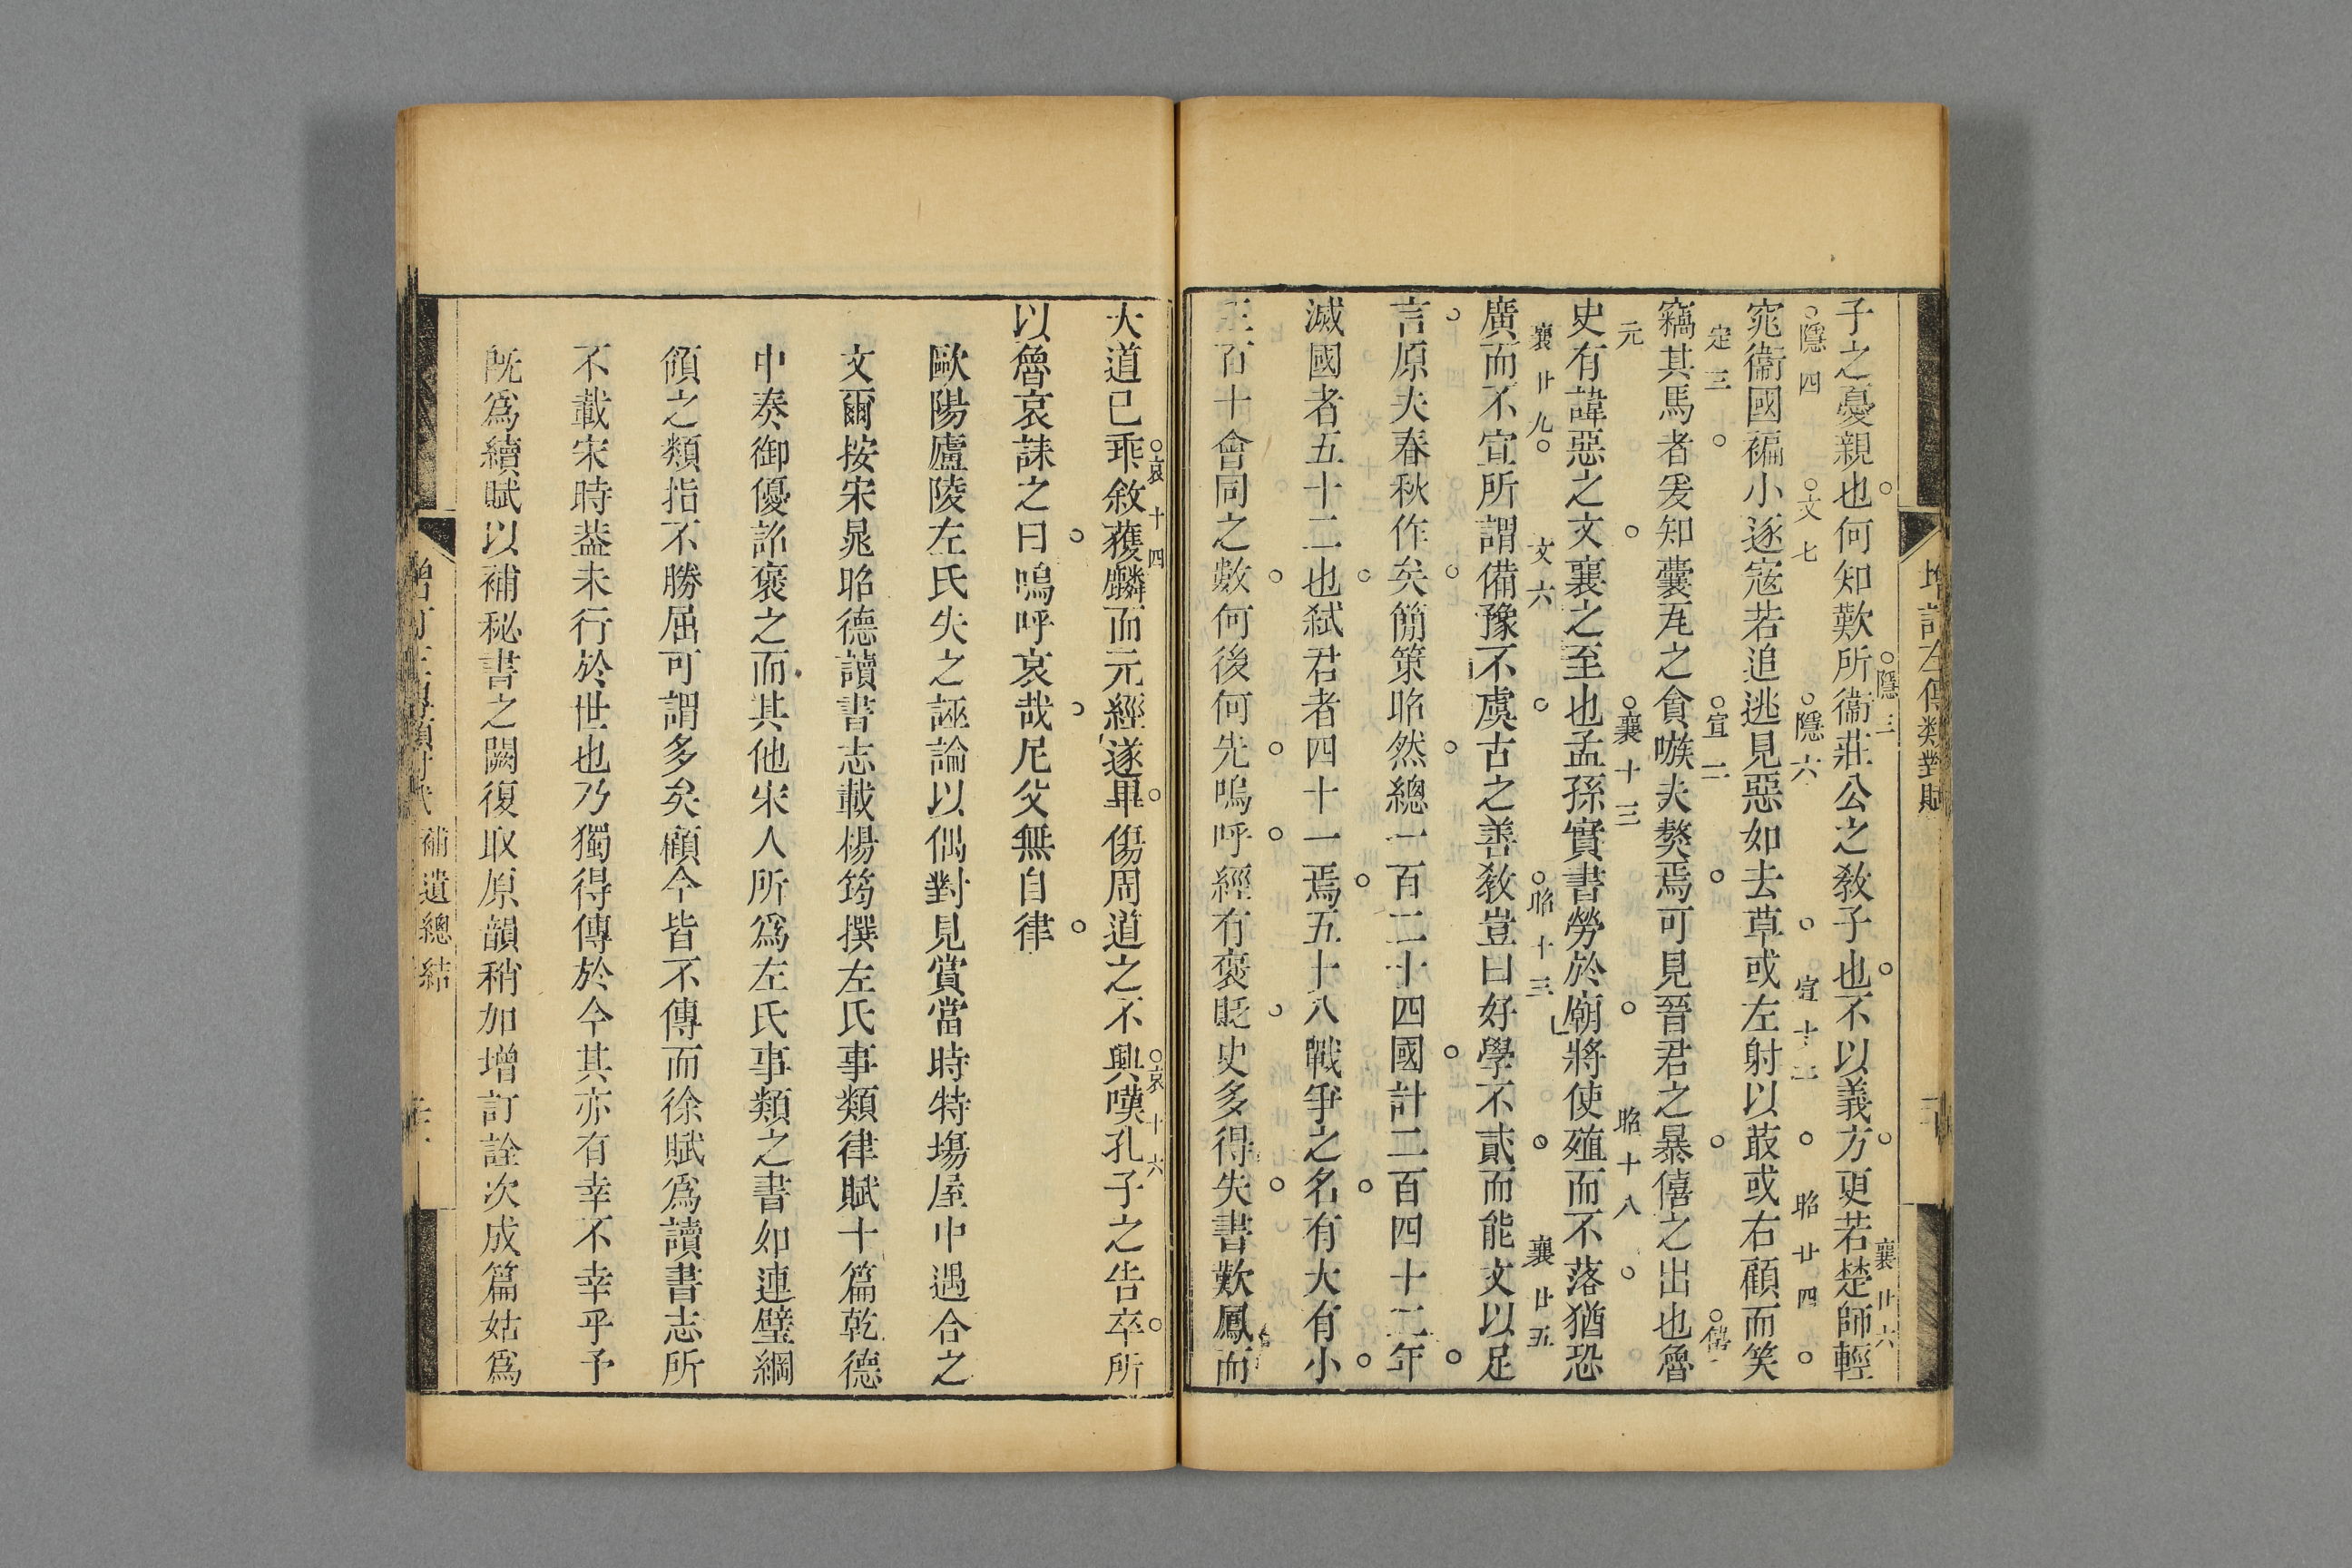 增訂左傳類對賦
子之憂親也何知歎所衞莊公之敎子也不以義方更若楚師輕
隱三
襄廿六
窕衞國褊小逐寇若追逃見惡如去草或左射以菆或右顧而笑
隱四
文七
隱六
宣十二
昭廿四
竊其馬者爰知囊瓦之貪嗾夫獒焉可見晉君之暴僖之出也魯
定三
宣二
傳
史有諱惡之文襄之至也孟孫實書勞於廟將使殖而不落猶恐
元
襄十三
昭十八
廣而不宣所謂備豫不虞古之善敎豈曰好學不貳而能文以足
襄廿九
文六
昭十三
襄廿五
言原夫春秋作矣簡策昭然總一百二十四國計二百四十二年
滅國者五十二也弒君者四十一焉五十八戰爭之名有大有小
百十會同之數何後何先嗚呼經有褒貶史多得失書歎鳳而
大道已乖敘獲麟而元經遂畢傷周道之不興嘆孔子之告卒所
哀十四
哀十六
以魯哀誄之曰嗚呼哀哉尼父無自律
歐陽廬陵左氏失之誣論以偶對見賞當時特塲屋中遇合之
文爾按宋晁昭德讀書志載楊筠撰左氏事類律賦十篇乾德
中奏御優詔褒之而其他宋人所爲左氏事類之書如連璧綱
領之類指不勝屈可謂多矣顧今皆不傳而徐賦爲讀書志所
不載宋時葢未行於世也乃獨得傳於今其亦有幸不幸乎予
旣爲續賦以補秘書之闕復取原韻稍加增訂詮次成篇姑爲
補遺總結